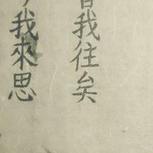 昔我往矣
我來思